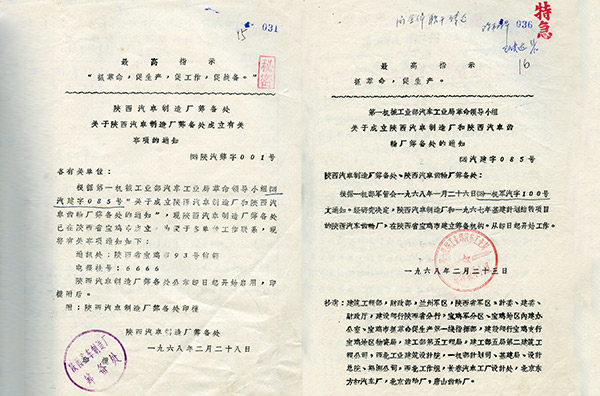 15
031
最高指示
“抓革命，促生产，促工作，促战备。”
秘密
陕西汽車制造厂筹备处
关于陕西汽車制造厂筹备处成立有关
事項的通知
陕汽筹字001号
各有关单位：
根据第一机械工业部汽車工业局革命领导小组
汽建字085号“关于成立陕西汽車制造厂和陕西汽車
齿輪厂筹备处的通知”，現陕西汽車制造厂筹备处
已在陕西省宝鸡市成立，为了便于工作联系，現
将有关事項通知如下：
通訊处：陕西省宝鸡市93号信箱
电报挂号：6666
陕西汽車制造厂筹备处公章即日起开始启用，印
模附后。
附：陕西汽車制造厂筹备处印模
陕西汽車制造厂筹备处
一九六八年二月二十八日
陕西汽車制造厂
筹备处
036
特急
16
最高指示
“抓革命，促生产。”
第一机械工业部汽車工业局革命领导小组
关于成立陕西汽車制造厂和陕西汽車齿
輪厂筹备处的通知
汽建字085号
陕西汽車制造厂筹备处、陕西汽車齿輪厂筹备处：
根据一机部軍管会一九六八年一月二十六日一机軍汽字100号
文通知，經研究决定，陕西汽車制造厂和一九六七年基建計划結轉項目
的陕西汽車齿輪厂，在陕西省宝鸡市建立筹备机构。从即日起开始工作。
一九六八年二月二十三日
抄送：建筑工程部，財政部，兰州軍区，陕西省軍区、計委、建委、
財政厅，建設銀行陕西省分行，宝鸡軍分区、宝鸡地区内建办
公室，宝鸡市抓革命促生产第一綫指揮部，建設銀行宝鸡支行
宝鸡地区物資局，建工部第五工程局，建工部五局第二建筑工
程公司，西北工业建筑設計院，一机部計划司、基建局、設計
总院、
西北工作組，长春汽車工厂設計处，北京东
方紅汽車厂，北京齿輪厂，唐山齿輪厂。